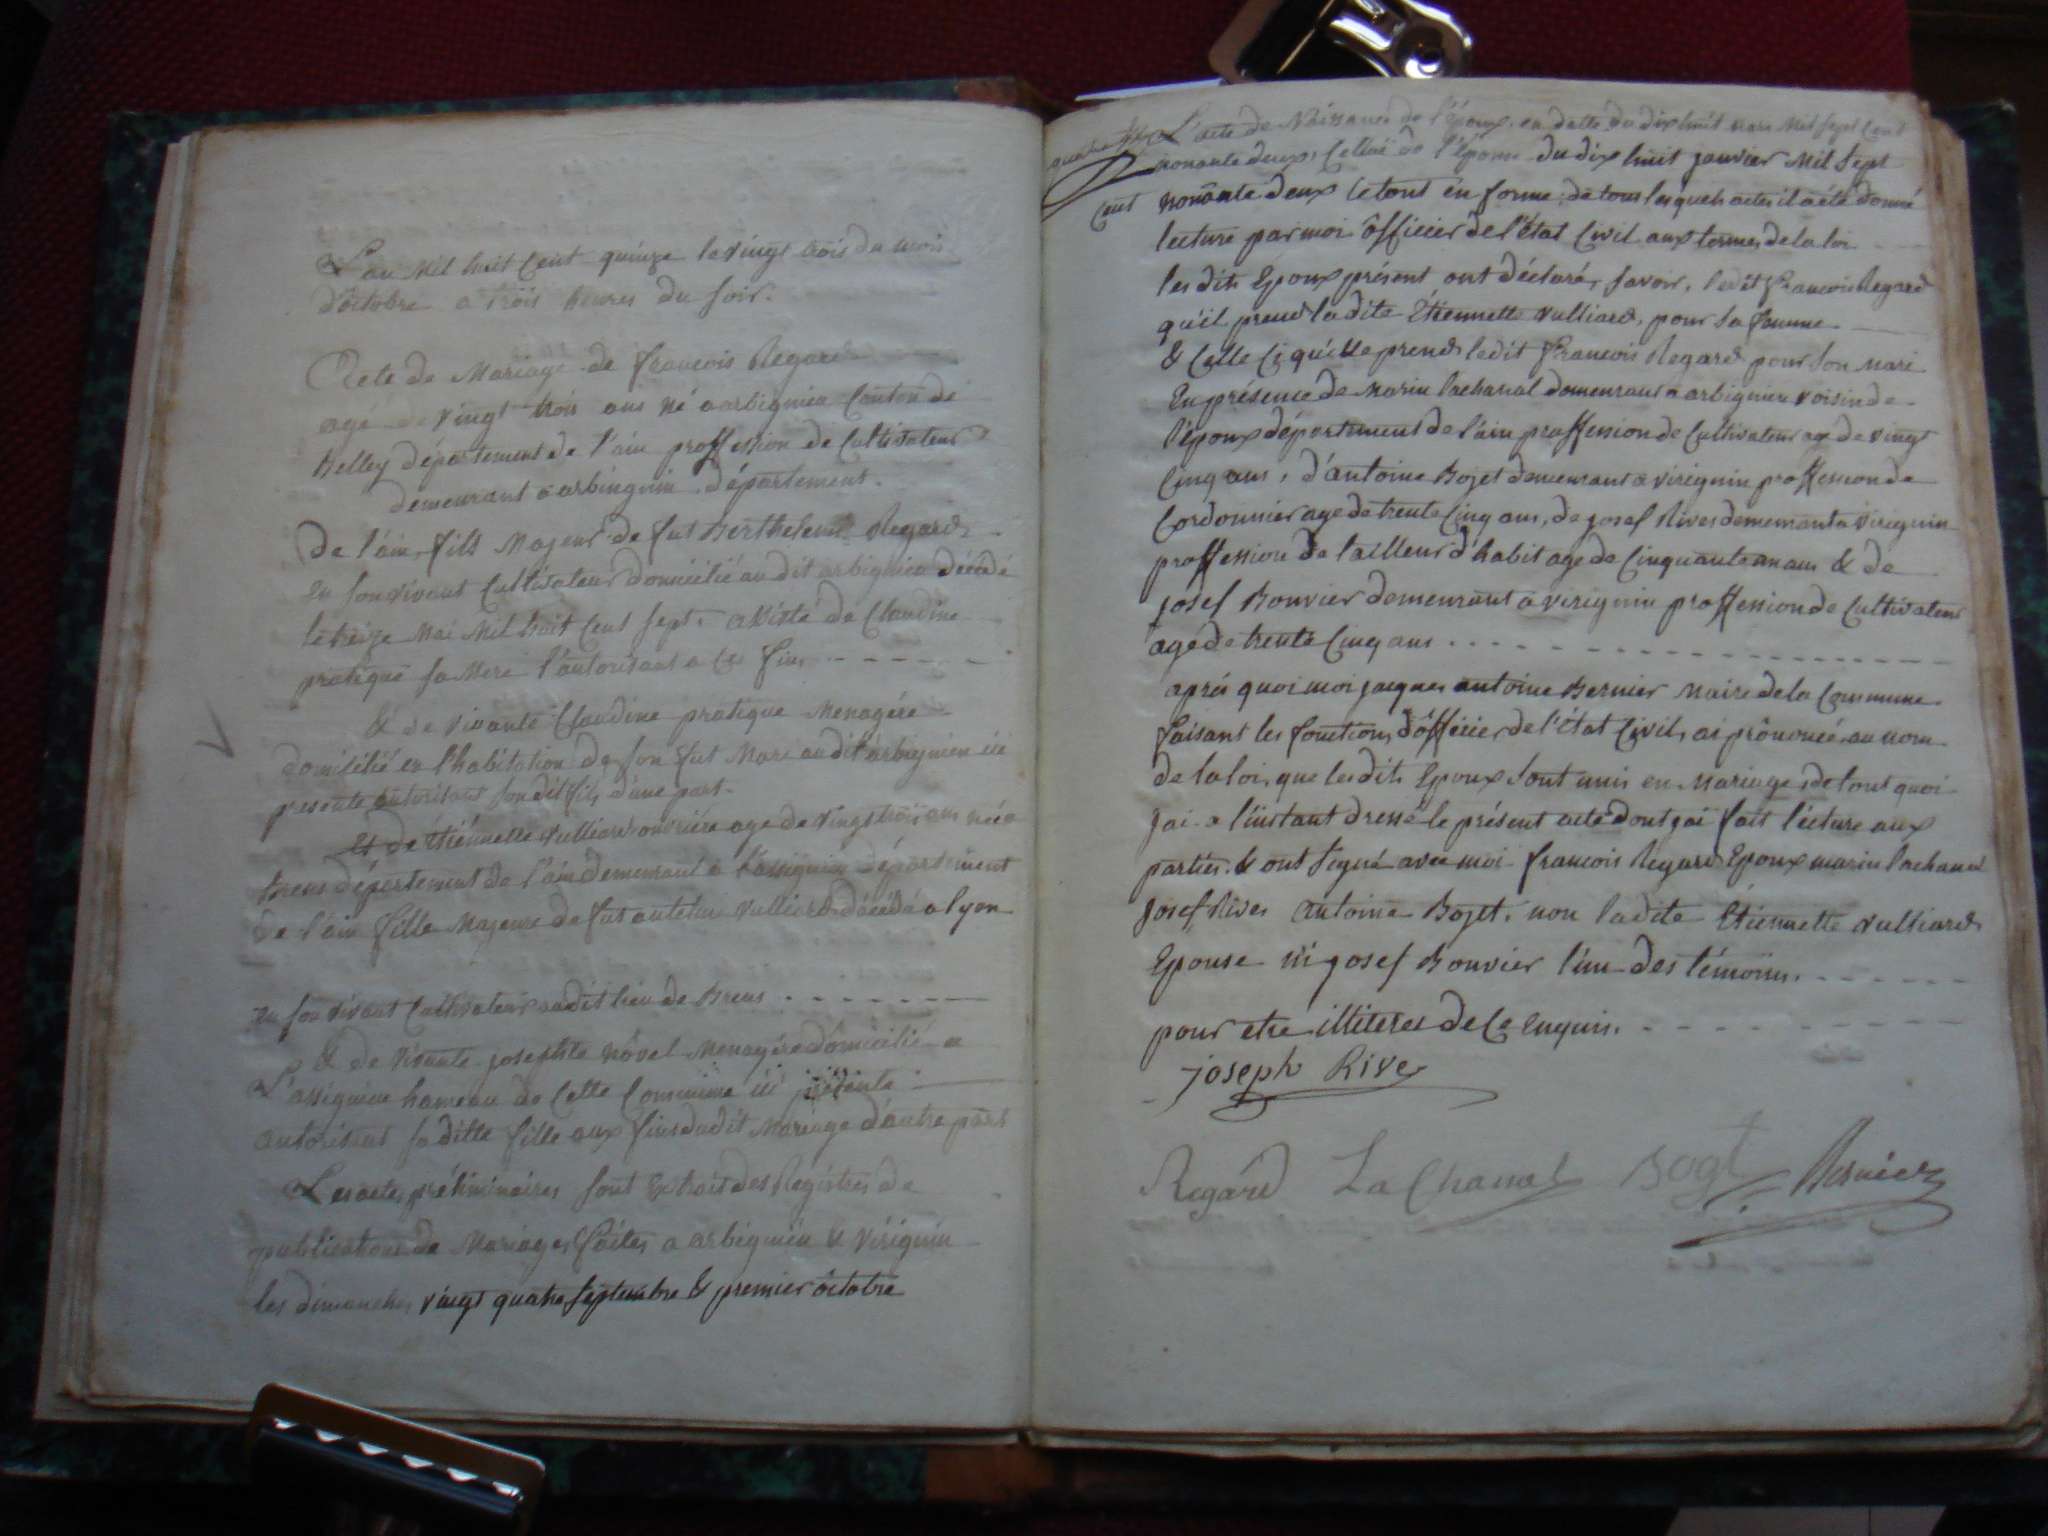 L'an Mil huit Cent quinze le vingt trois du mois
d'octobre a trois heures du soir.
Acte de Mariage de francois Regard
agé de vingt trois ans né a arbignieu Canton de
Belley département de l'ain proffession de Cultivateur
demeurant a arbinguiu département.
De l'ain, fils Majeur de fut Berthelemi Regard
En son vivant Cultivateur domicilié au dit arbignieu décédé
le treize Mai Mil huit Cent Sept. assisté de Claudine
pratique sa Mere l'autorisant a Ces fins
& de vivante Claudine pratique Menagére
domicilié en l'habitation de son fut Mari au dit arbignieu ici
presente autorisant son dit fils d'une part.
Et de Étiennette Vulliard ouvriére age de vingt trois ans née a
Brens département de l'ain demeurant a Lassignieu département
De l'ain fille Majeure de fut Vulliard décédé a lyon
En son vivant Cultivateur audit lieu de Brens
& de vivante josephte Novel Menagére domicilié a
L'assignieu hameau de Cette Commune ici présente
autorisant sa ditte fille aux fins dudit Mariage d'autre part
Les actes préliminaires sont Extrait des Régistres de
publications de Mariages faites a arbignieu & Virignin
les dimanches vingt quatre septembre & premier octobre
L'acte de Naissance de l'époux en datte du dix huit mars Mil sept Cent
quatre
nonante deux, Celui de l'épouse du dix huit janvier Mil sept
Cent nonante deux le tout en forme: de tous lesquels actes il a été donné
lecture par moi officier de l'état Civil aux termes de la loi
les dits Epoux présent ont déclaré, savoir, ledit francois Regard
qu'il prend la dite Étiennette Vulliard, pour sa femme
& Celle Ci qu'elle prend ledit francois Regard pour son mari
En présence de Marin Lachanal demeurant a arbignieu voisin de
l'époux département de l'ain proffession de Cultivateur age de vingt
Cinq ans, d'antoine Bojet demeurant a virignin proffession de
Cordonnier age de trente Cinq ans, de josef Rives demeurant a virignin
proffession de tailleur d'habit age de Cinquante un ans & de
josef Bouvier demeurant a virignin proffession de Cultivateur
agé de trente Cinq ans
aprés quoi moi jacques antoine Bernier Maire de la Commune
faisant les fonctions d'officier de l'état Civil, ai prononcé au nom
de la loi, que les dits Epoux sont unis en Mariage, de tout quoi
jai a l'instant dressé le présent acte dont jai fait lécture aux
parties & ont signé avec moi francois Regard Epoux marin Lachanal
josef Rives antoine Bojet, non ladite Étiennette Vulliard
Epouse ni josef Bouvier l'un des témoins.
pour etre illiteres de Ce Enquis.
joseph Rive
Regard LaChanal Bogt Bernier